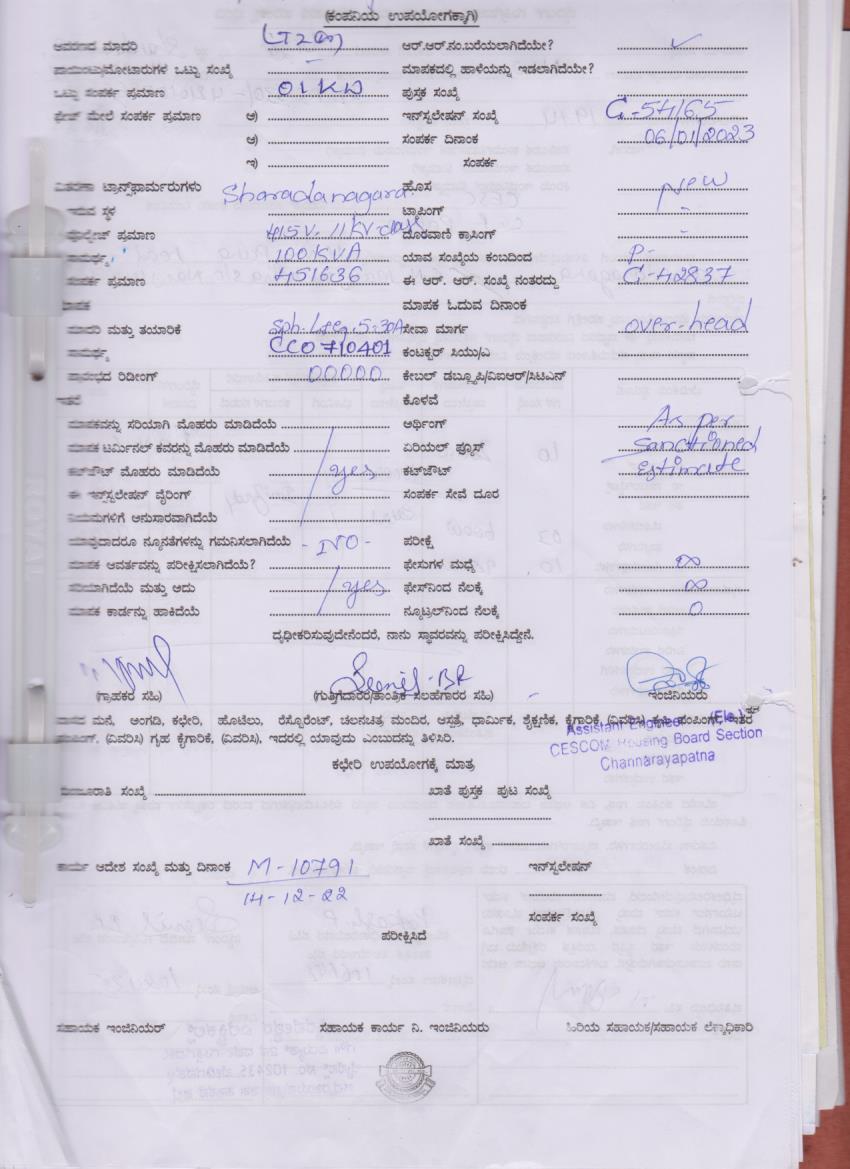 (ಕಂಪನಿಯ ಉಪಯೋಗಕ್ಕಾಗಿ)
ಆವರಣದ ಮಾದರಿ LT2 ಆರ್.ಆರ್.ನಂ.ಬರೆಯಲಾಗಿದೆಯೇ? ✓
ಪಾಯಿಂಟ್ಸು/ಮೋಟಾರುಗಳ ಒಟ್ಟು ಸಂಖ್ಯೆ - ಮಾಪಕದಲ್ಲಿ ಹಾಳೆಯನ್ನು ಇಡಲಾಗಿದೆಯೇ?
ಒಟ್ಟು ಸಂಪರ್ಕ ಪ್ರಮಾಣ 01KW ಪುಸ್ತಕ ಸಂಖ್ಯೆ
ಫೇಜ್ ಮೇಲೆ ಸಂಪರ್ಕ ಪ್ರಮಾಣ ಅ) ಇನ್‌ಸ್ಟಲೇಷನ್ ಸಂಖ್ಯೆ C-54165
ಆ) ಸಂಪರ್ಕ ದಿನಾಂಕ 06/01/2023
ಇ) ಸಂಪರ್ಕ
ವಿತರಣಾ ಟ್ರಾನ್ಸ್‌ಫಾರ್ಮರುಗಳು Sharadanagara. ಹೊಸ New
ಇರುವ ಸ್ಥಳ ಟ್ಯಾಪಿಂಗ್ -
ವೋಲ್ಟೇಜ್ ಪ್ರಮಾಣ 415V. 11KV-class ದೂರವಾಣಿ ಕ್ರಾಸಿಂಗ್ -
ಸಾಮರ್ಥ್ಯ 100KVA ಯಾವ ಸಂಖ್ಯೆಯ ಕಂಬದಿಂದ P-
ಸಂಪರ್ಕ ಪ್ರಮಾಣ 451636 ಈ ಆರ್. ಆರ್. ಸಂಖ್ಯೆ ನಂತರದ್ದು C-42837
ಮಾಪಕ ಮಾಪಕ ಓದುವ ದಿನಾಂಕ
ಮಾದರಿ ಮತ್ತು ತಯಾರಿಕೆ 5-30A ಸೇವಾ ಮಾರ್ಗ over-head
ಸಾಮರ್ಥ್ಯ CCO710401 ಕಂಟಕ್ಟರ್ ಸಿಯು/ಎ
ಪ್ರಾರಂಭದ ರಿಡೀಂಗ್ 00000 ಕೇಬಲ್ ಡಬ್ಲ್ಯೂಪಿ/ವಿಐಆರ್/ಸಿಟಿಎಸ್
ಇತರೆ ಕೊಳವೆ
ಮಾಪಕವನ್ನು ಸರಿಯಾಗಿ ಮೊಹರು ಮಾಡಿದೆಯೆ ಅರ್ಥಿಂಗ್ As per
ಮಾಪಕ ಟರ್ಮಿನಲ್ ಕವರನ್ನು ಮೊಹರು ಮಾಡಿದೆಯೆ ಏರಿಯಲ್ ಫ್ಯೂಸ್ Sanctioned
ಕಟ್‌ಔಟ್ ಮೊಹರು ಮಾಡಿದೆಯೆ yes ಕಟ್‌ಔಟ್ Estimate
ಈ ಇನ್‌ಸ್ಟಲೇಷನ್ ವೈರಿಂಗ್ ಸಂಪರ್ಕ ಸೇವೆ ದೂರ
ನಿಯಮಗಳಿಗೆ ಅನುಸಾರವಾಗಿದೆಯೆ
ಯಾವುದಾದರೂ ನ್ಯೂನತೆಗಳನ್ನು ಗಮನಿಸಲಾಗಿದೆಯೆ - NO - ಪರೀಕ್ಷೆ
ಮಾಪಕ ಆವರ್ತವನ್ನು ಪರೀಕ್ಷಿಸಲಾಗಿದೆಯೆ? ಫೇಸುಗಳ ಮಧ್ಯೆ ∞
ಸರಿಯಾಗಿದೆಯೆ ಮತ್ತು ಅದು yes ಫೇಸ್‌ನಿಂದ ನೆಲಕ್ಕೆ ∞
ಮಾಪಕ ಕಾರ್ಡನ್ನು ಹಾಕಿದೆಯೆ ನ್ಯೂಟ್ರಲ್‌ನಿಂದ ನೆಲಕ್ಕೆ 0
ದೃಢೀಕರಿಸುವುದೇನೆಂದರೆ, ನಾನು ಸ್ಥಾವರವನ್ನು ಪರೀಕ್ಷಿಸಿದ್ದೇನೆ.
(ಗ್ರಾಹಕರ ಸಹಿ) (ಗುತ್ತಿಗೆದಾರರ/ತಾಂತ್ರಿಕ ಸಲಹೆಗಾರರ ಸಹಿ) ಇಂಜಿನಿಯರು
ವಾಸದ ಮನೆ, ಅಂಗಡಿ, ಕಛೇರಿ, ಹೊಟೆಲು, ರೆಸ್ಟೋರೆಂಟ್, ಚಲನಚಿತ್ರ ಮಂದಿರ, ಆಸ್ಪತ್ರೆ, ಧಾರ್ಮಿಕ, ಶೈಕ್ಷಣಿಕ, ಕೈಗಾರಿಕೆ, (ವಿವರಿಸಿ) ಕೃಷಿ ಪಂಪಿಂಗ್, ಇತರ
ಪಂಪಿಂಗ್, (ವಿವರಿಸಿ) ಗೃಹ ಕೈಗಾರಿಕೆ, (ವಿವರಿಸಿ), ಇದರಲ್ಲಿ ಯಾವುದು ಎಂಬುದನ್ನು ತಿಳಿಸಿರಿ.
Assistant Engineer (Ele.)
CESCOM Housing Board Section
Channarayapatna
ಕಛೇರಿ ಉಪಯೋಗಕ್ಕೆ ಮಾತ್ರ
ಮಂಜೂರಾತಿ ಸಂಖ್ಯೆ ಖಾತೆ ಪುಸ್ತಕ ಪುಟ ಸಂಖ್ಯೆ
ಖಾತೆ ಸಂಖ್ಯೆ
ಕಾರ್ಯ ಆದೇಶ ಸಂಖ್ಯೆ ಮತ್ತು ದಿನಾಂಕ M-10791 ಇನ್‌ಸ್ಟಲೇಷನ್
14-12-22
ಸಂಪರ್ಕ ಸಂಖ್ಯೆ
ಪರೀಕ್ಷಿಸಿದೆ
ಸಹಾಯಕ ಇಂಜಿನಿಯರ್ ಸಹಾಯಕ ಕಾರ್ಯ ನಿ. ಇಂಜಿನಿಯರು ಹಿರಿಯ ಸಹಾಯಕ/ಸಹಾಯಕ ಲೆಕ್ಕಾಧಿಕಾರಿ